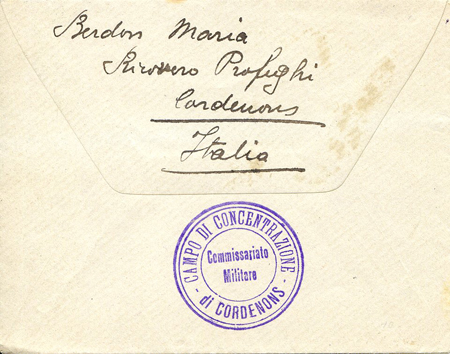 Berdon Maria
Ricovero Profughi
Cordenons
Italia
CAMPO DI CONCENTRAZIONE
Commissariato
Militare
- di CORDENONS -